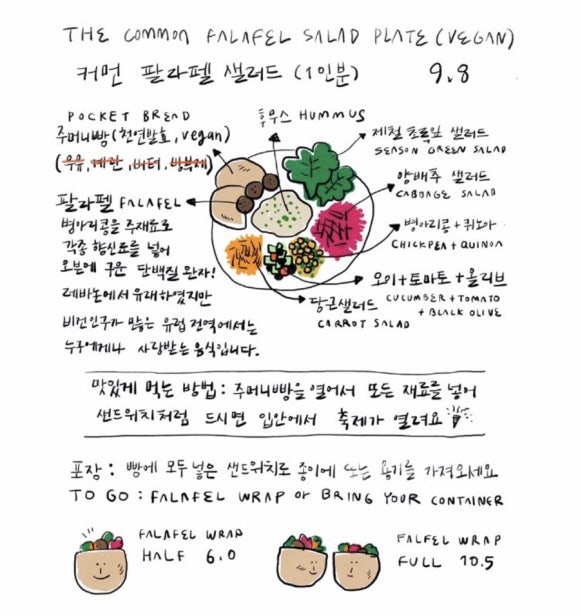 THE COMMON FALAFEL SALAD PLATE (VEGAN)
커먼 팔라펠 샐러드 (1인분) 9.8
POCKET BREAD
주머니빵 (천연발효, vegan)
(우유, 계란, 버터, 방부제)
후무스 HUMMUS
제철 초록잎 샐러드
SEASON GREEN SALAD
양배추 샐러드
CABBAGE SALAD
병아리콩 + 퀴노아
CHICKPEA + QUINOA
오이 + 토마토 + 올리브
CUCUMBER + TOMATO
+ BLACK OLIVE
당근샐러드
CARROT SALAD
팔라펠 FALAFEL
병아리콩을 주재료로
각종 향신료를 넣어
오븐에 구운 단백질 완자!
레바논에서 유래하였지만
비건인구가 많은 유럽 전역에서는
누구에게나 사랑받는 음식입니다.
맛있게 먹는 방법 : 주머니빵을 열어서 모든 재료를 넣어
샌드위치처럼 드시면 입안에서 축제가 열려요
포장 : 빵에 모두 넣은 샌드위치로 종이에 또는 용기를 가져오세요
TO GO : FALAFEL WRAP or BRING YOUR CONTAINER
FALAFEL WRAP
HALF 6.0
FALFEL WRAP
FULL 10.5